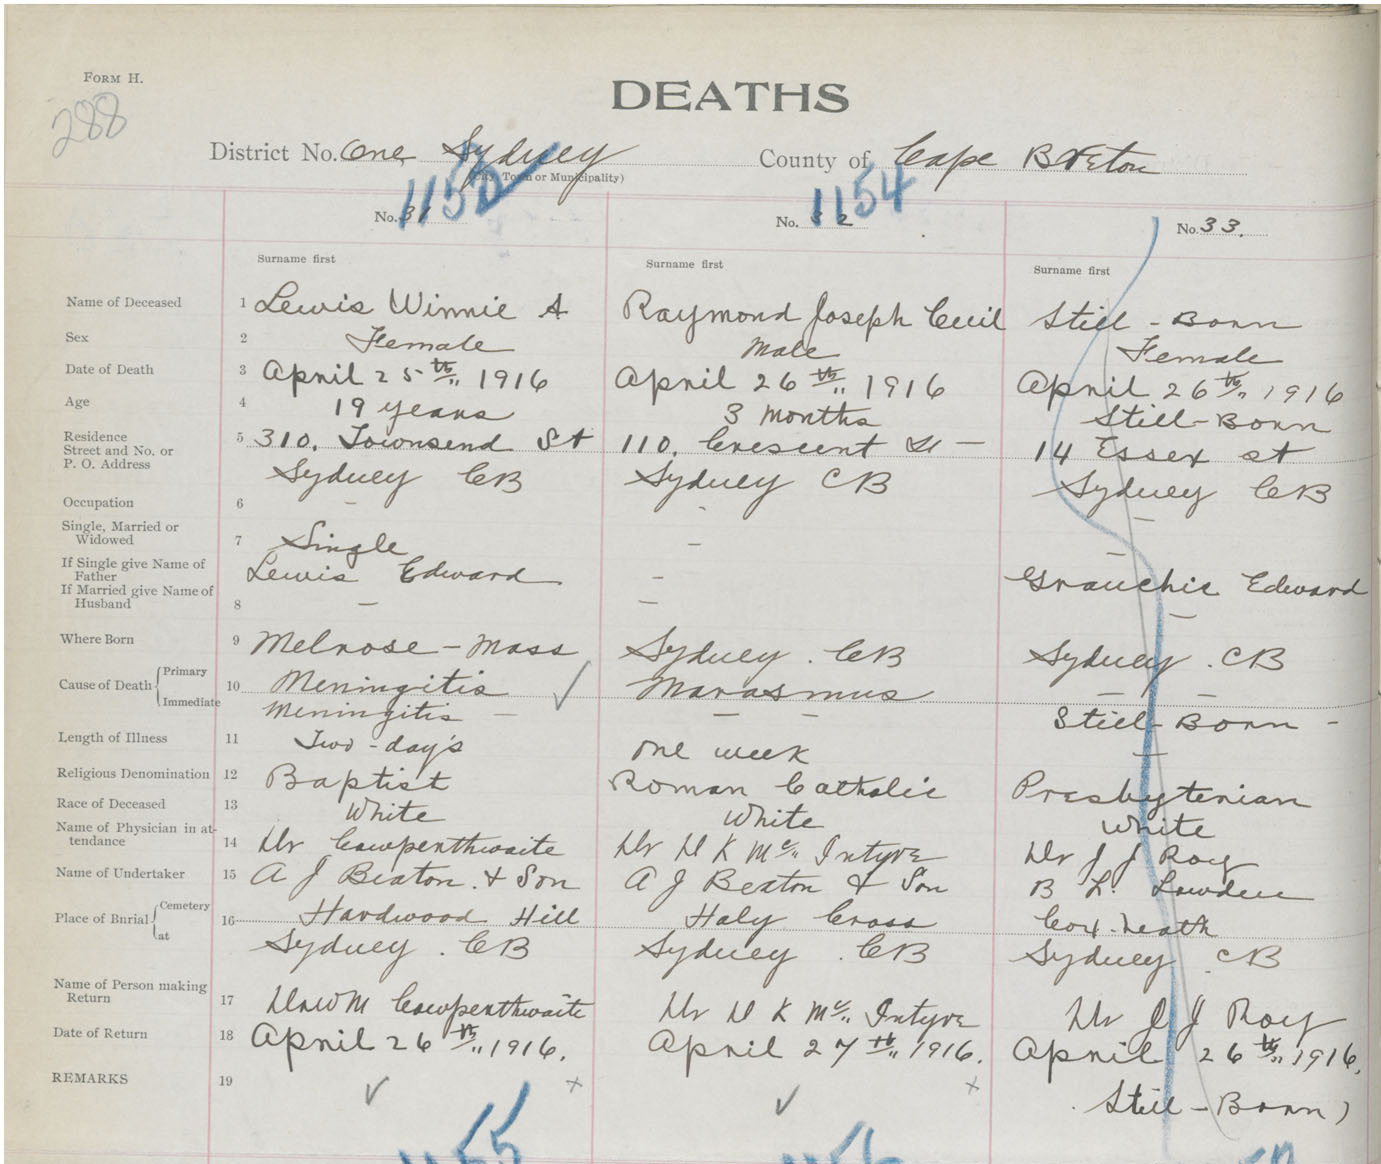 FORM H.
288
DEATHS
District No. One Sydney County of Cape Breton
(City, Town or Municipality)
1154
No. 31 No. 32 No. 33.
Surname first Surname first Surname first
Name of Deceased 1 Lewis Winnie A Raymond Joseph Cecil Still-Born
Sex 2 Female Male Female
Date of Death 3 April 25th,, 1916 April 26th,, 1916 April 26th,, 1916
Age 4 19 years 3 months Still-Born
Residence Street and No. or P. O. Address 5 310. Townsend St 110. Crescent St — 14 Essex st
Sydney CB Sydney CB Sydney CB
Occupation 6 - - -
Single, Married or Widowed 7 Single - -
If Single give Name of Father Lewis Edward - Grauchie Edward
If Married give Name of Husband 8 - - -
Where Born 9 Melrose - Mass Sydney. CB Sydney. CB
Cause of Death { Primary 10 Meningitis ✓ Marasmus - -
Immediate Meningitis - - - Still-Born -
Length of Illness 11 Two-day's one week -
Religious Denomination 12 Baptist Roman Catholic Presbyterian
Race of Deceased 13 White White White
Name of Physician in attendance 14 Dr Cowperthwaite Dr D K Mc,, Intyre Dr J J Roy
Name of Undertaker 15 A J Beaton. & Son A J Beaton & Son B L. Lowden
Place of Burial { Cemetery 16 Hardwood Hill Holy Cross Cox-heath
at Sydney. CB Sydney. CB Sydney. CB
Name of Person making Return 17 Dr W M Cowperthwaite Dr D K Mc,, Intyre Dr J J Roy
Date of Return 18 April 26th,, 1916. April 27th,, 1916. April 26th,, 1916.
REMARKS 19 ✓ x ✓ x Still-Born)
1155 1156